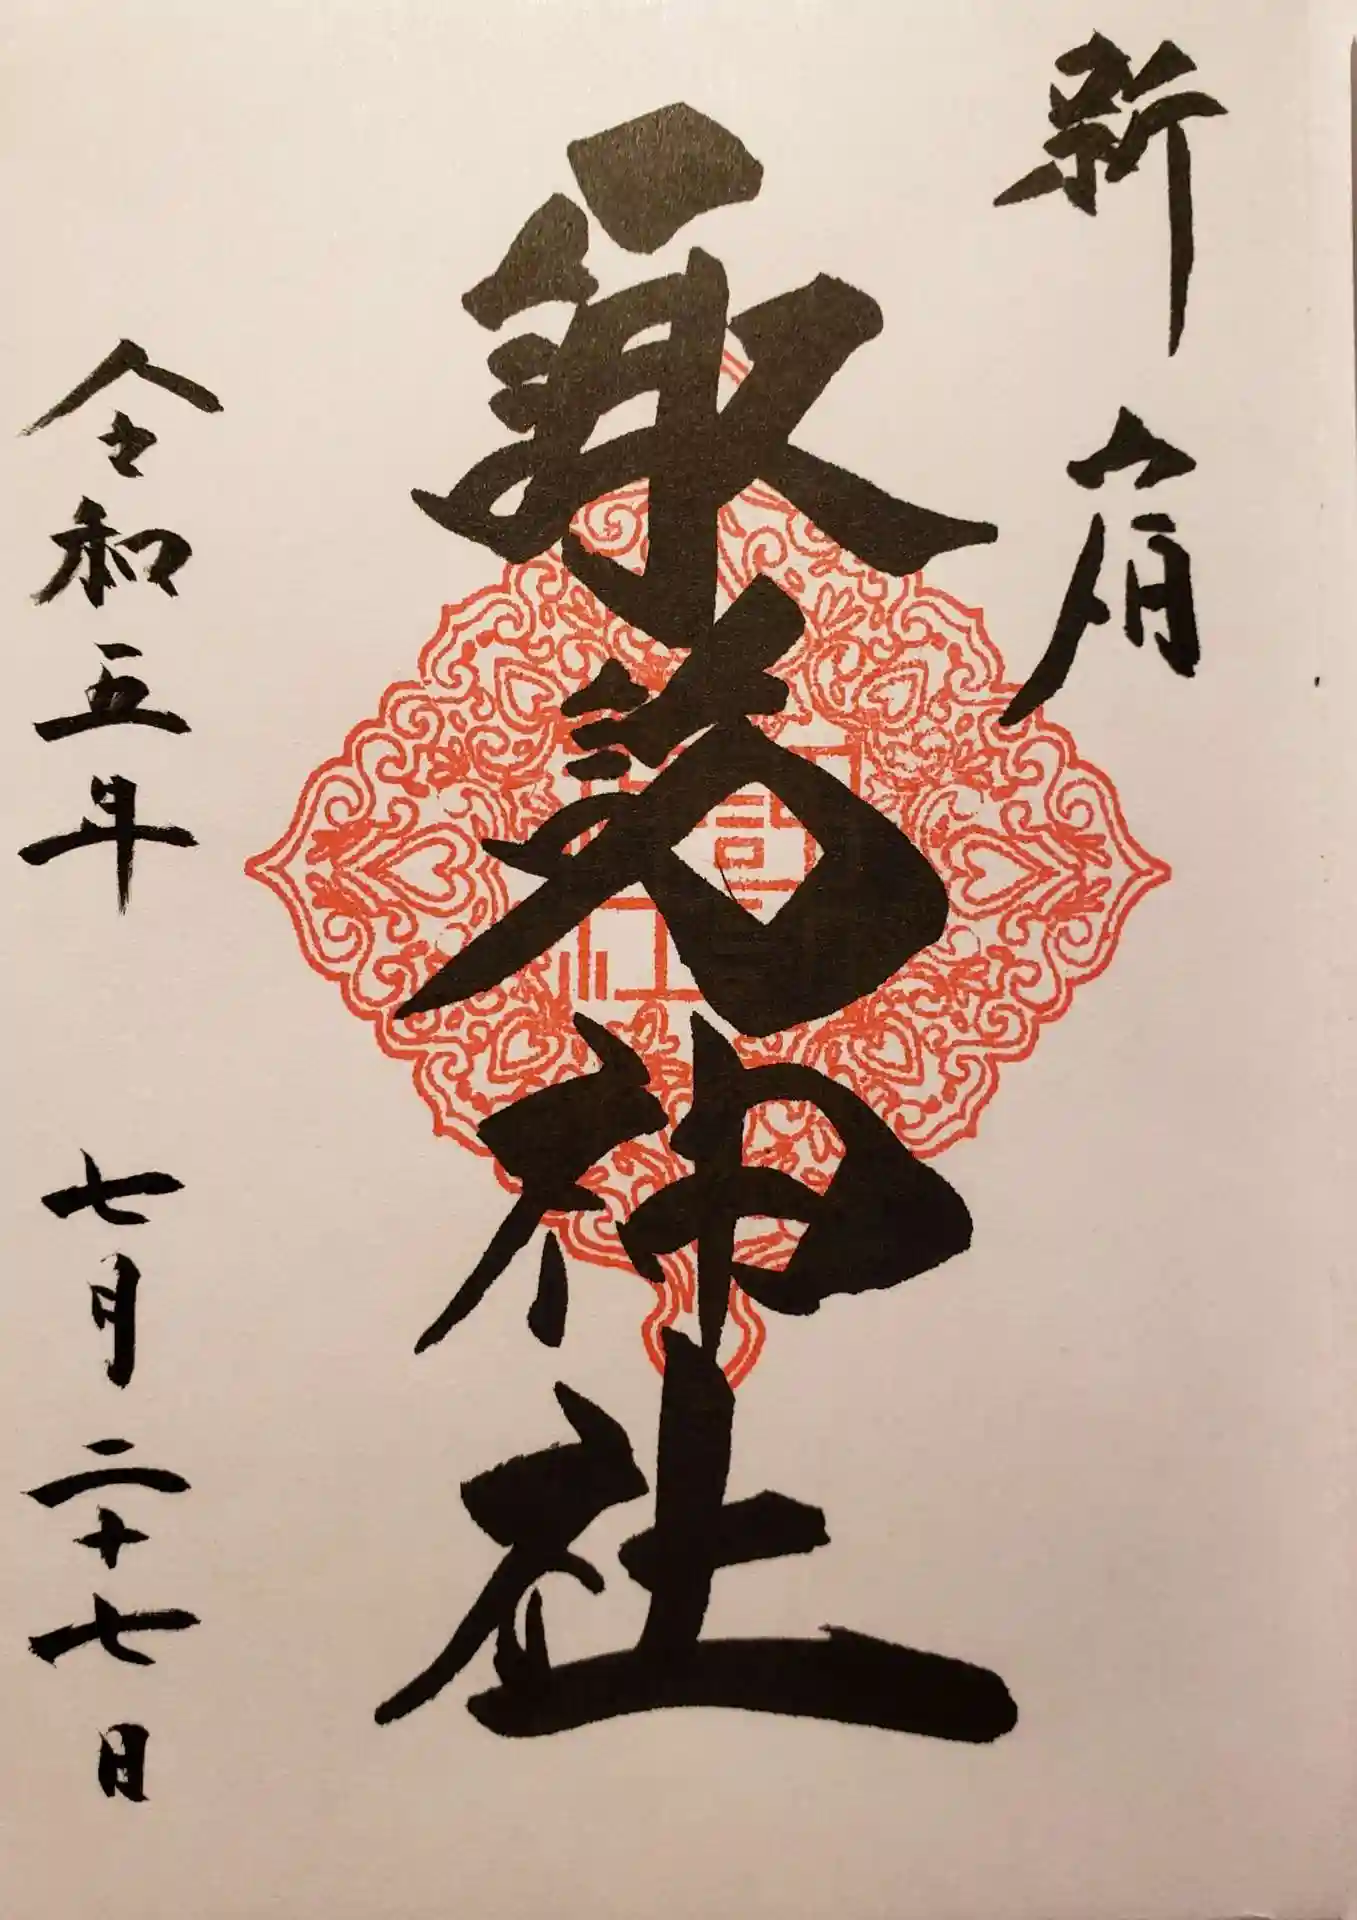 新宿
諏訪神社
令和五年 七月二十七日